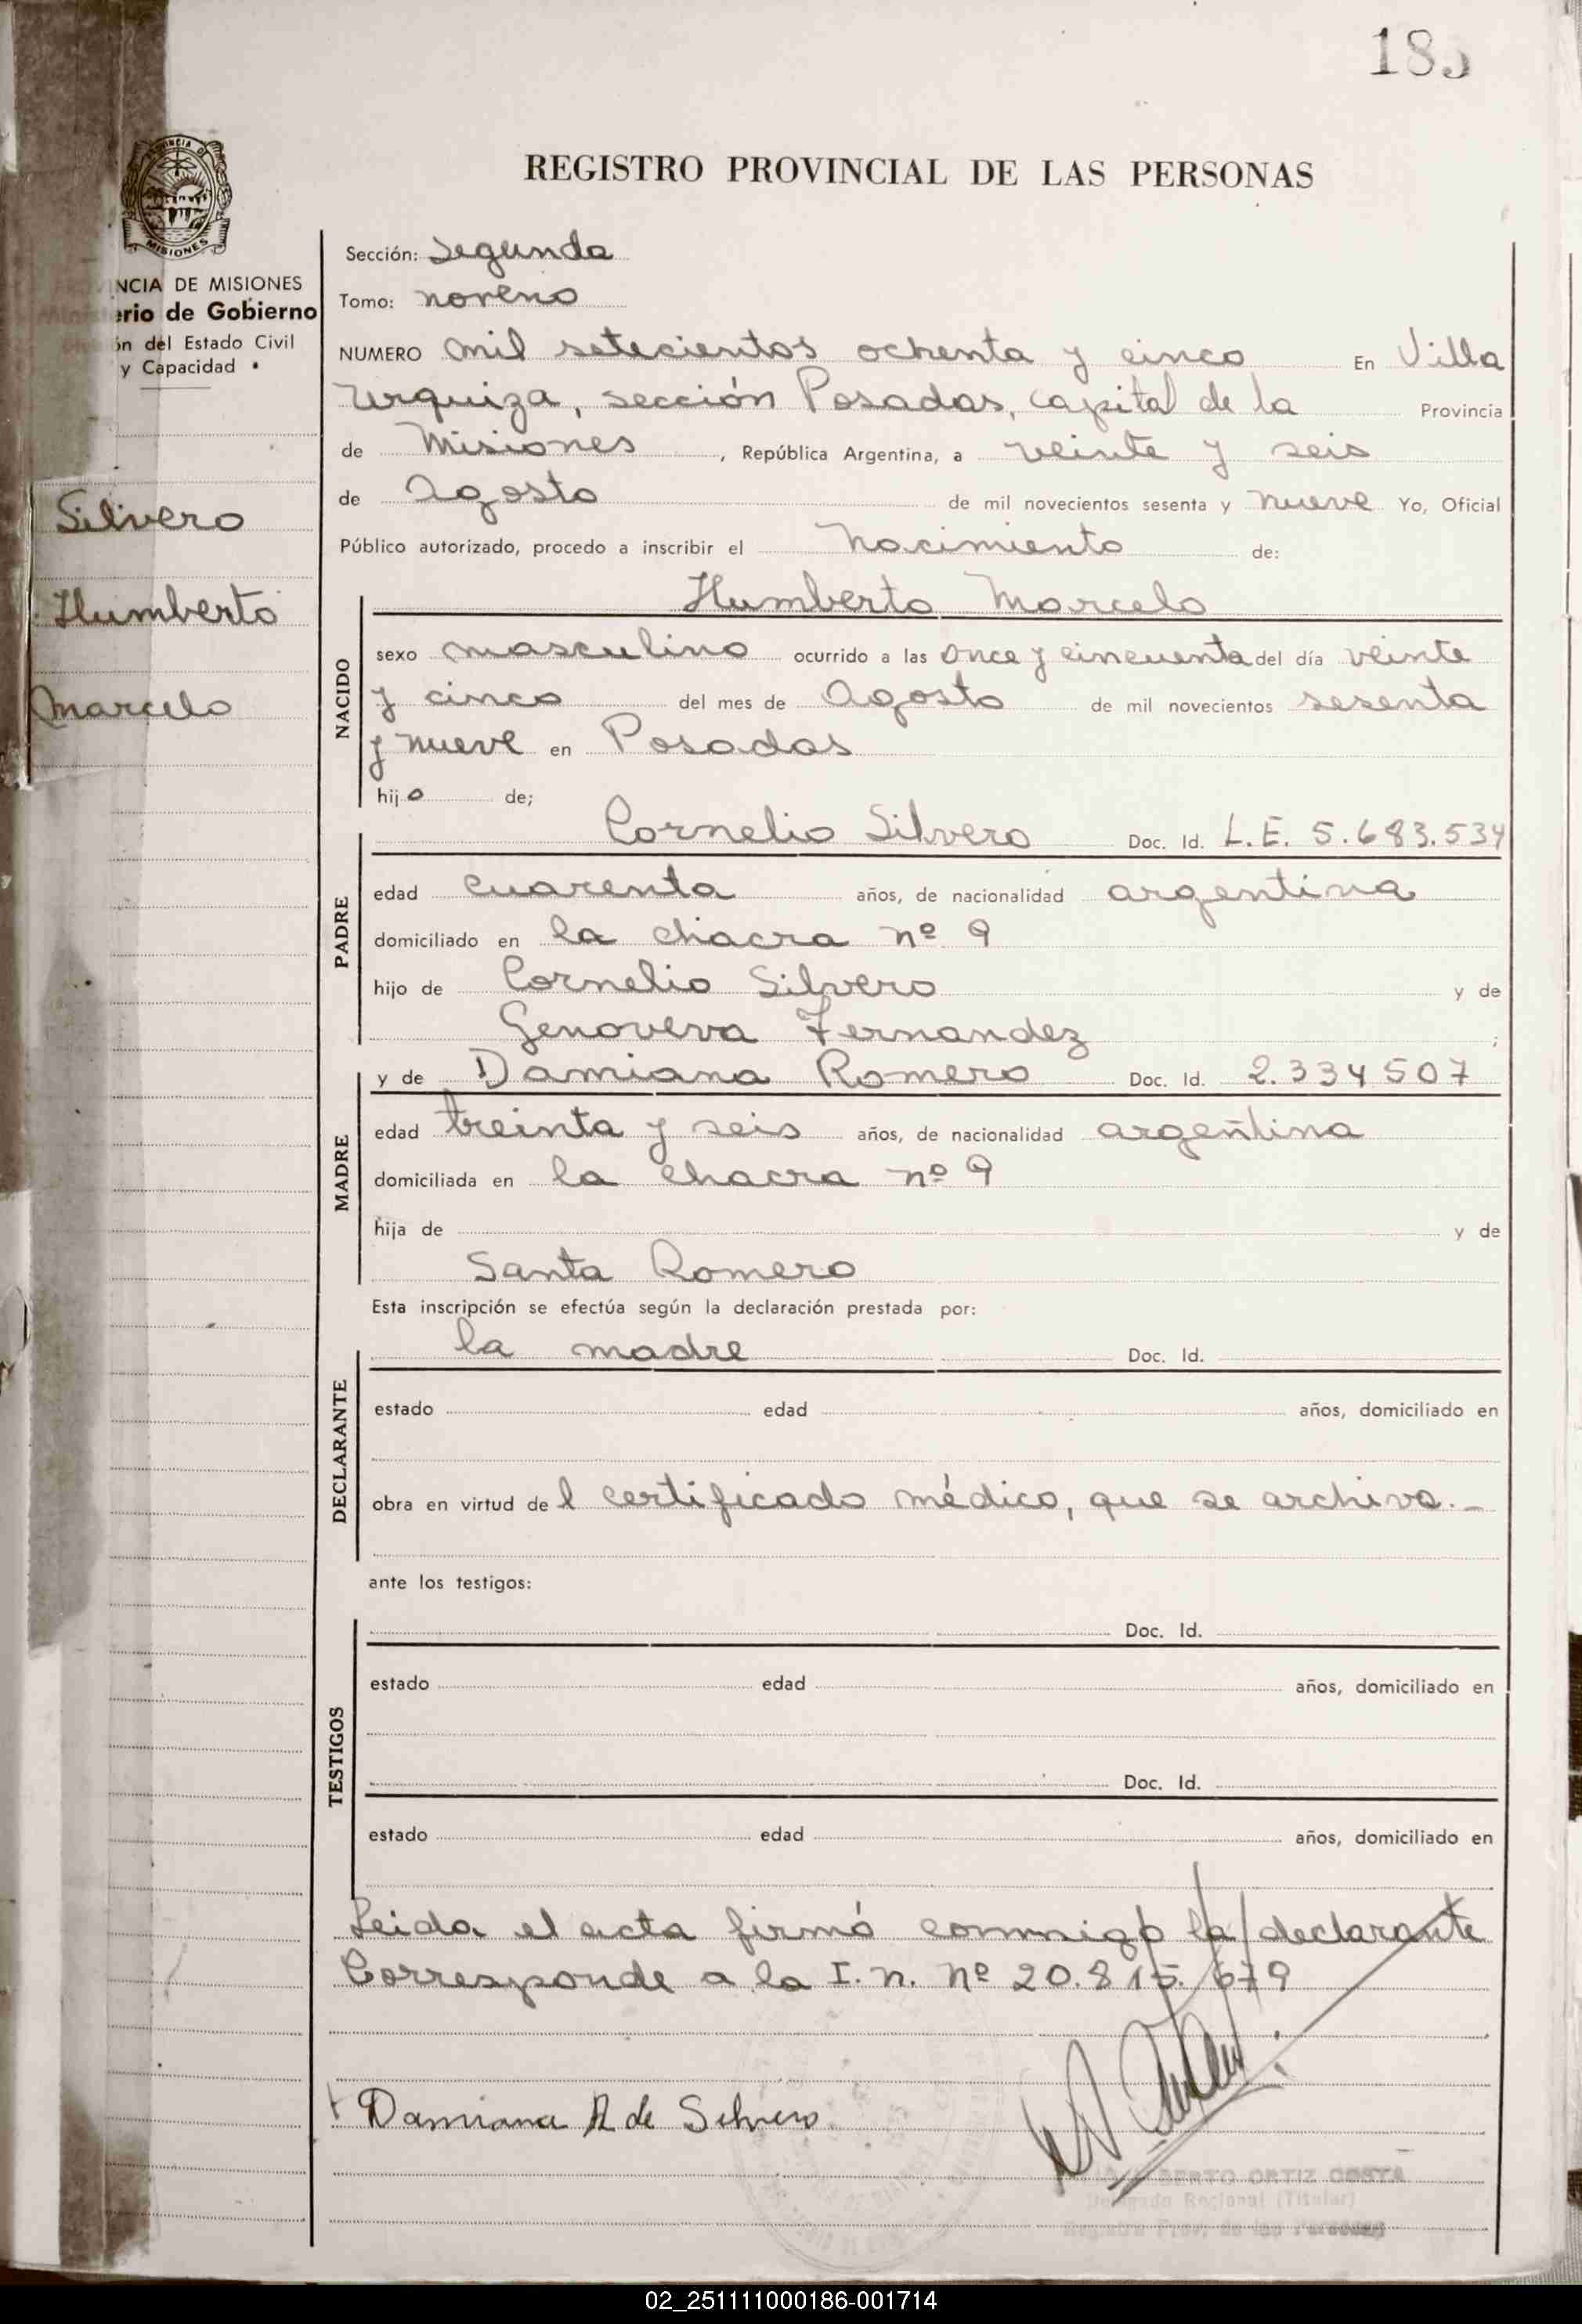 185
REGISTRO PROVINCIAL DE LAS PERSONAS
MISIONES
PROVINCIA DE MISIONES
Ministerio de Gobierno
del Estado Civil
y Capacidad
Silvero
Humberto
Marcelo
Sección: Segunda
Tomo: noveno
NUMERO mil setecientos ochenta y cinco En Villa
Urquiza, sección Posadas, capital de la Provincia
de Misiones, República Argentina, a veinte y seis
de Agosto de mil novecientos sesenta y nueve Yo, Oficial
Público autorizado, procedo a inscribir el Nacimiento de:
Humberto Marcelo
NACIDO
sexo masculino ocurrido a las once y cincuenta del día veinte
y cinco del mes de Agosto de mil novecientos sesenta
y nueve en Posadas
hijo de;
Cornelio Silvero Doc. Id. L.E. 5.683.534
PADRE
edad cuarenta años, de nacionalidad argentina
domiciliado en la chacra nº 9
hijo de Cornelio Silvero y de
Genoveva Fernandez ;
y de Damiana Romero Doc. Id. 2.334507
MADRE
edad treinta y seis años, de nacionalidad argentina
domiciliada en la chacra nº 9
hija de y de
Santa Romero
Esta inscripción se efectúa según la declaración prestada por:
la madre Doc. Id.
DECLARANTE
estado edad años, domiciliado en
obra en virtud del certificado médico, que se archiva.-
ante los testigos:
Doc. Id.
TESTIGOS
estado edad años, domiciliado en
Doc. Id.
estado edad años, domiciliado en
Leida el acta firmó conmigo la declarante
Corresponde a la I.n. nº 20.815.679
Damiana R de Silvero
ORTIZ COSTA
Regional (Titular)
02_251111000186-001714